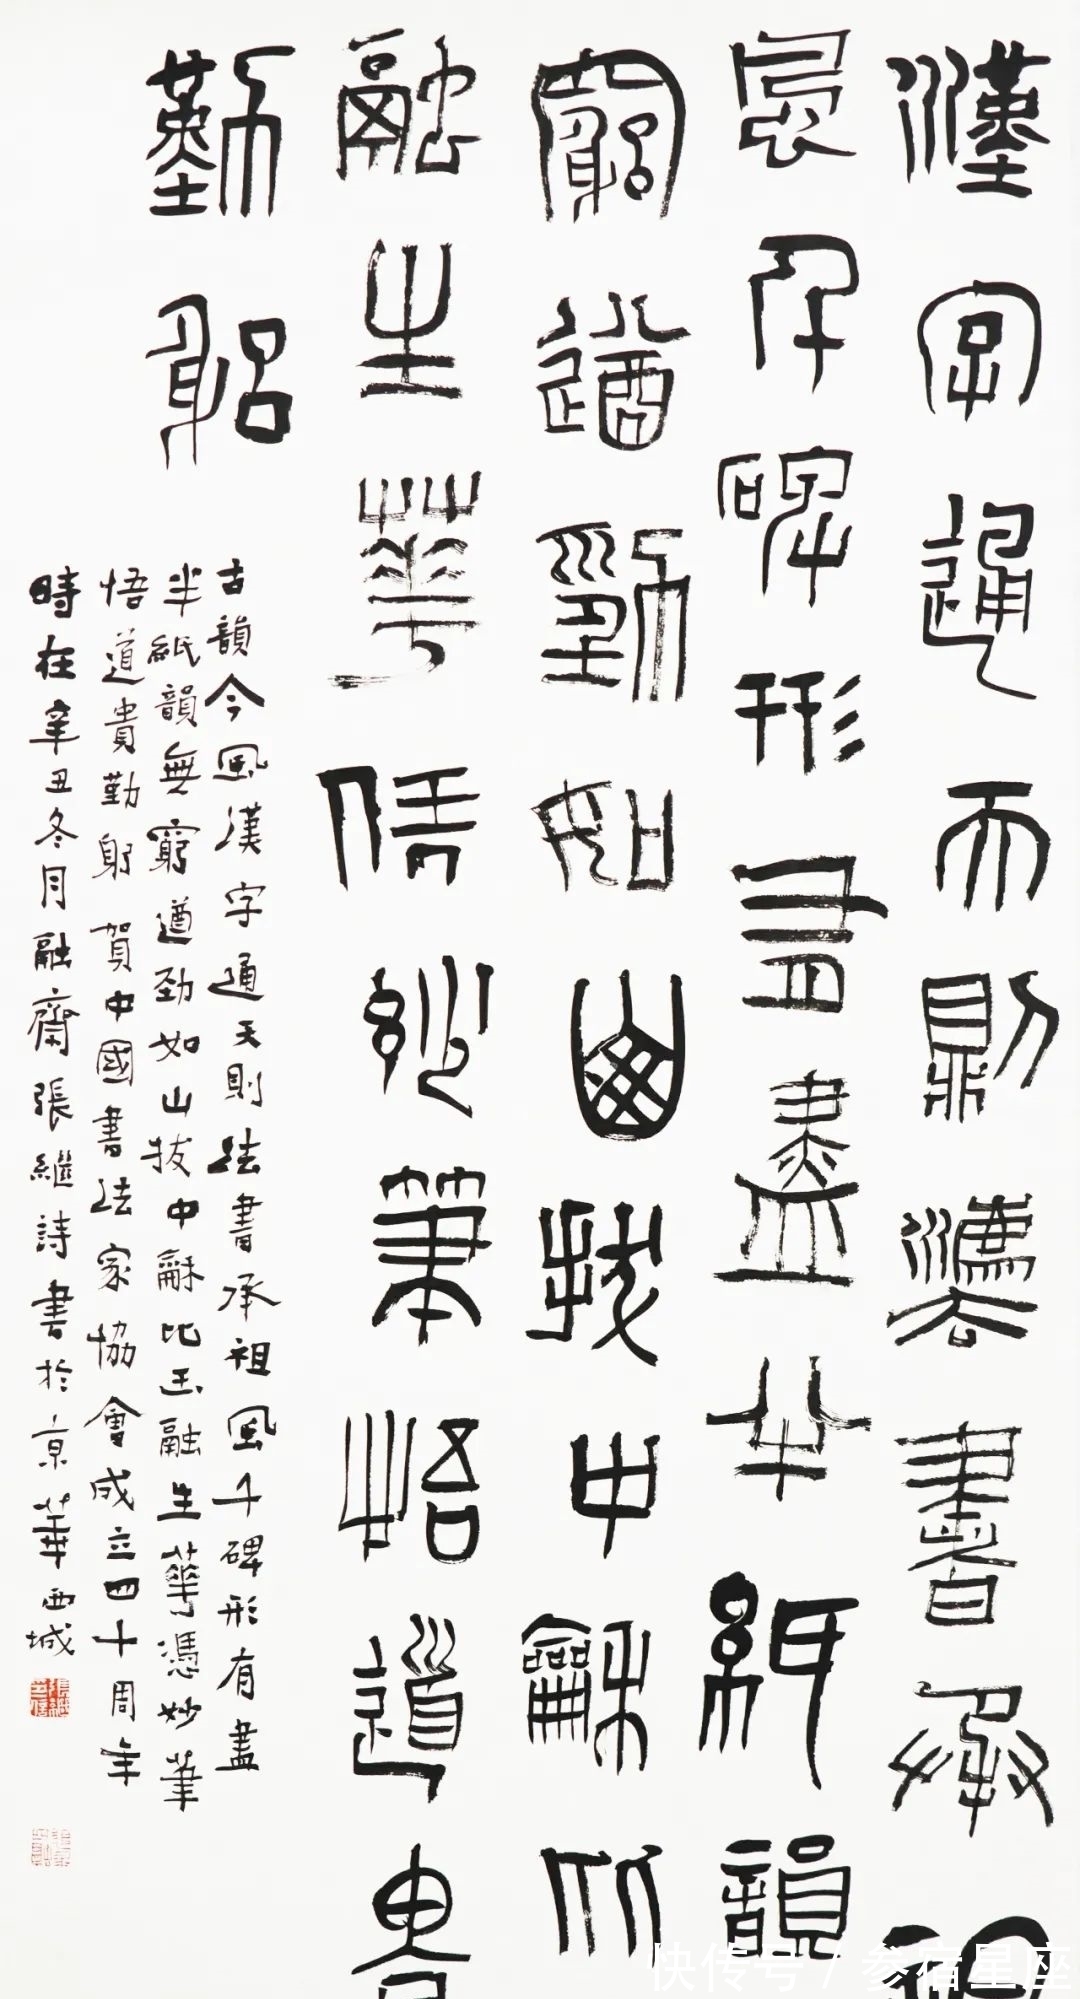 漢字通天則灋書承祖
風千碑形有盡半紙韻
窮遒勁如山拔中龢比
融生華憑妙筆悟道貴
勤躬
古韻今風漢字通天則法書承祖風千碑形有盡
半紙韻無窮遒勁如山拔中龢比玉融生華憑妙筆
悟道貴勤躬 賀中國書法家協會成立四十周年
時在辛丑冬月融齋張繼詩書於京華西城
快传号 / 参宿星座